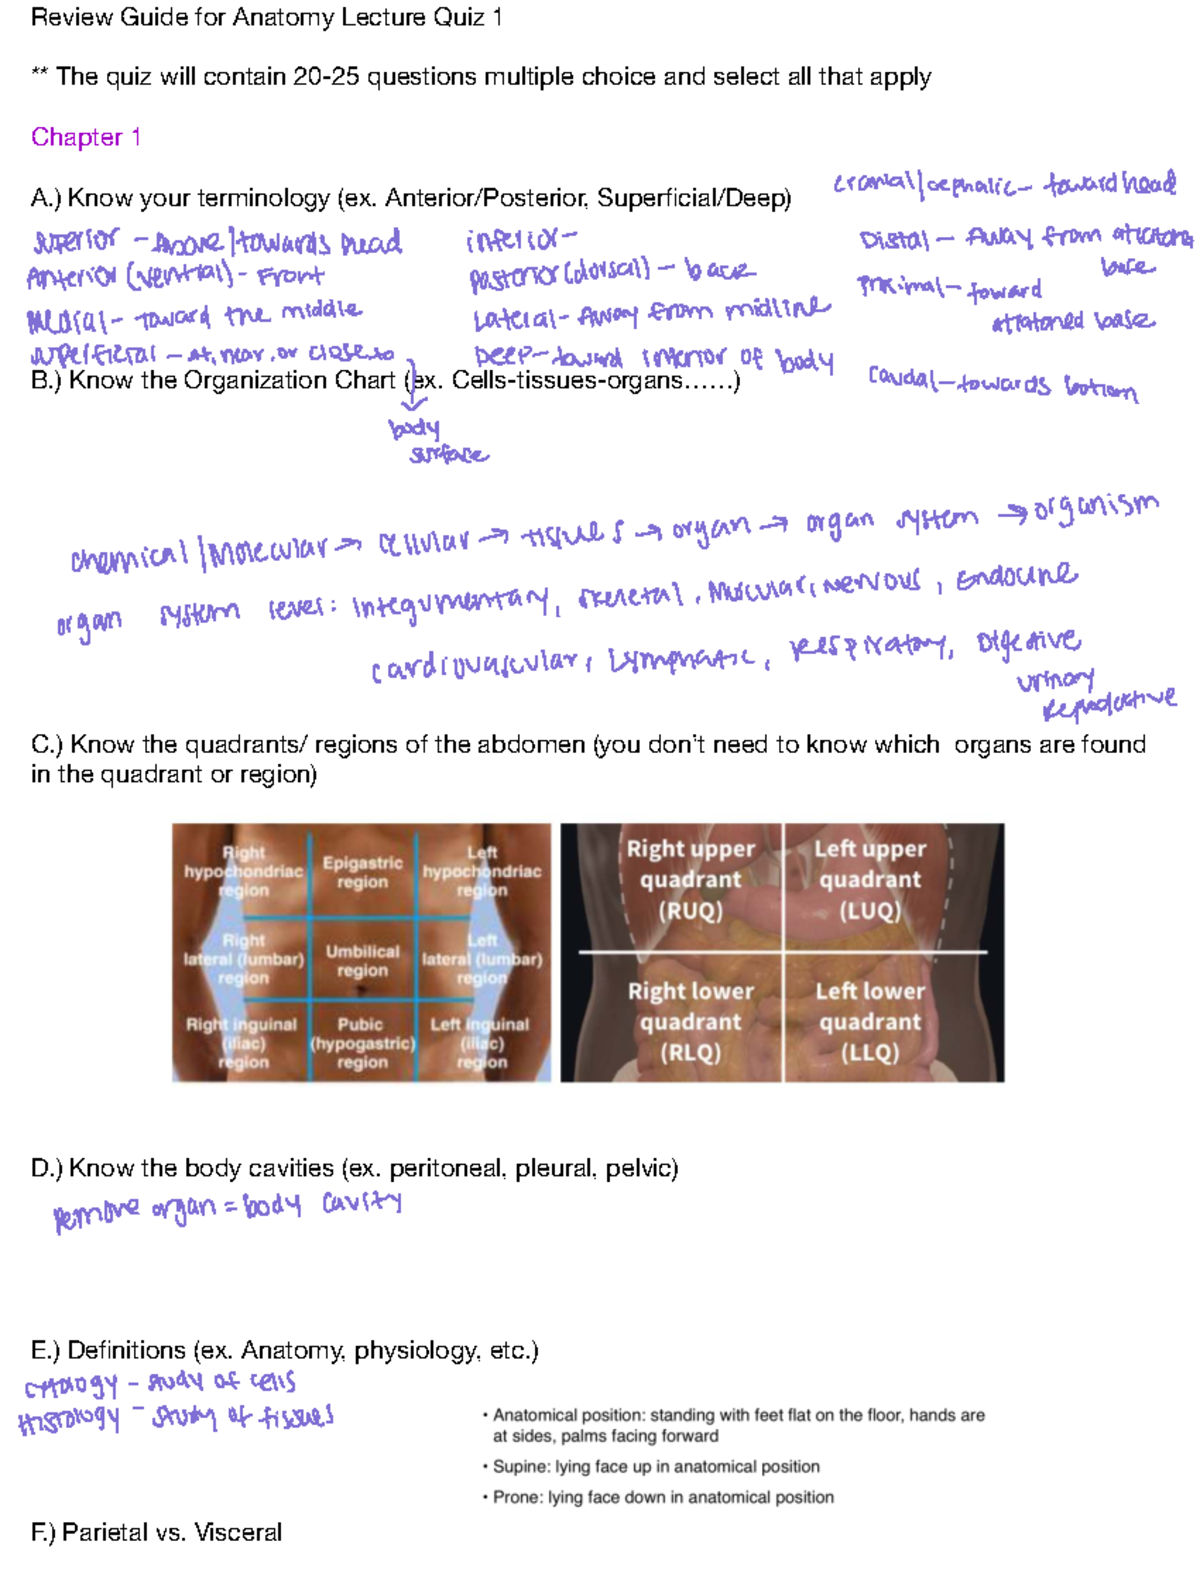 Review Guide for Anatomy Lecture Quiz 1
** The quiz will contain 20-25 questions multiple choice and select all that apply
Chapter 1
A.) Know your terminology (ex. Anterior/Posterior, Superficial/Deep)
cranial/cephalic- toward head
superior - Above/towards head
inferior-
Distal - Away from
base
Anterior (ventral) - Front
posterior (dorsal) - back
toward
base
Medial - toward the middle
Lateral - Away from midline
superficial - at, near, or close to
body
surface
Deep - toward interior of body
caudal - towards bottom
B.) Know the Organization Chart (ex. Cells-tissues-organs......)
chemical/Molecular → cellular → tissues → organ → organ system → organism
organ system level: Integumentary, skeletal, Muscular, Nervous, Endocrine
cardiovascular, Lymphatic, Respiratory, Digestive
urinary
Reproductive
C.) Know the quadrants/ regions of the abdomen (you don't need to know which organs are found
in the quadrant or region)
Right
hypochondriac
region
Epigastric
region
Left
hypochondriac
region
Right
lateral (lumbar)
region
Umbilical
region
Left
lateral (lumbar)
region
Right inguinal
(iliac)
region
Pubic
(hypogastric)
region
Left inguinal
(iliac)
region
Right upper
quadrant
(RUQ)
Left upper
quadrant
(LUQ)
Right lower
quadrant
(RLQ)
Left lower
quadrant
(LLQ)
D.) Know the body cavities (ex. peritoneal, pleural, pelvic)
Remove organ = body cavity
E.) Definitions (ex. Anatomy, physiology, etc.)
cytology - study of cells
Histology - study of tissues
• Anatomical position: standing with feet flat on the floor, hands are
at sides, palms facing forward
• Supine: lying face up in anatomical position
• Prone: lying face down in anatomical position
F.) Parietal vs. Visceral